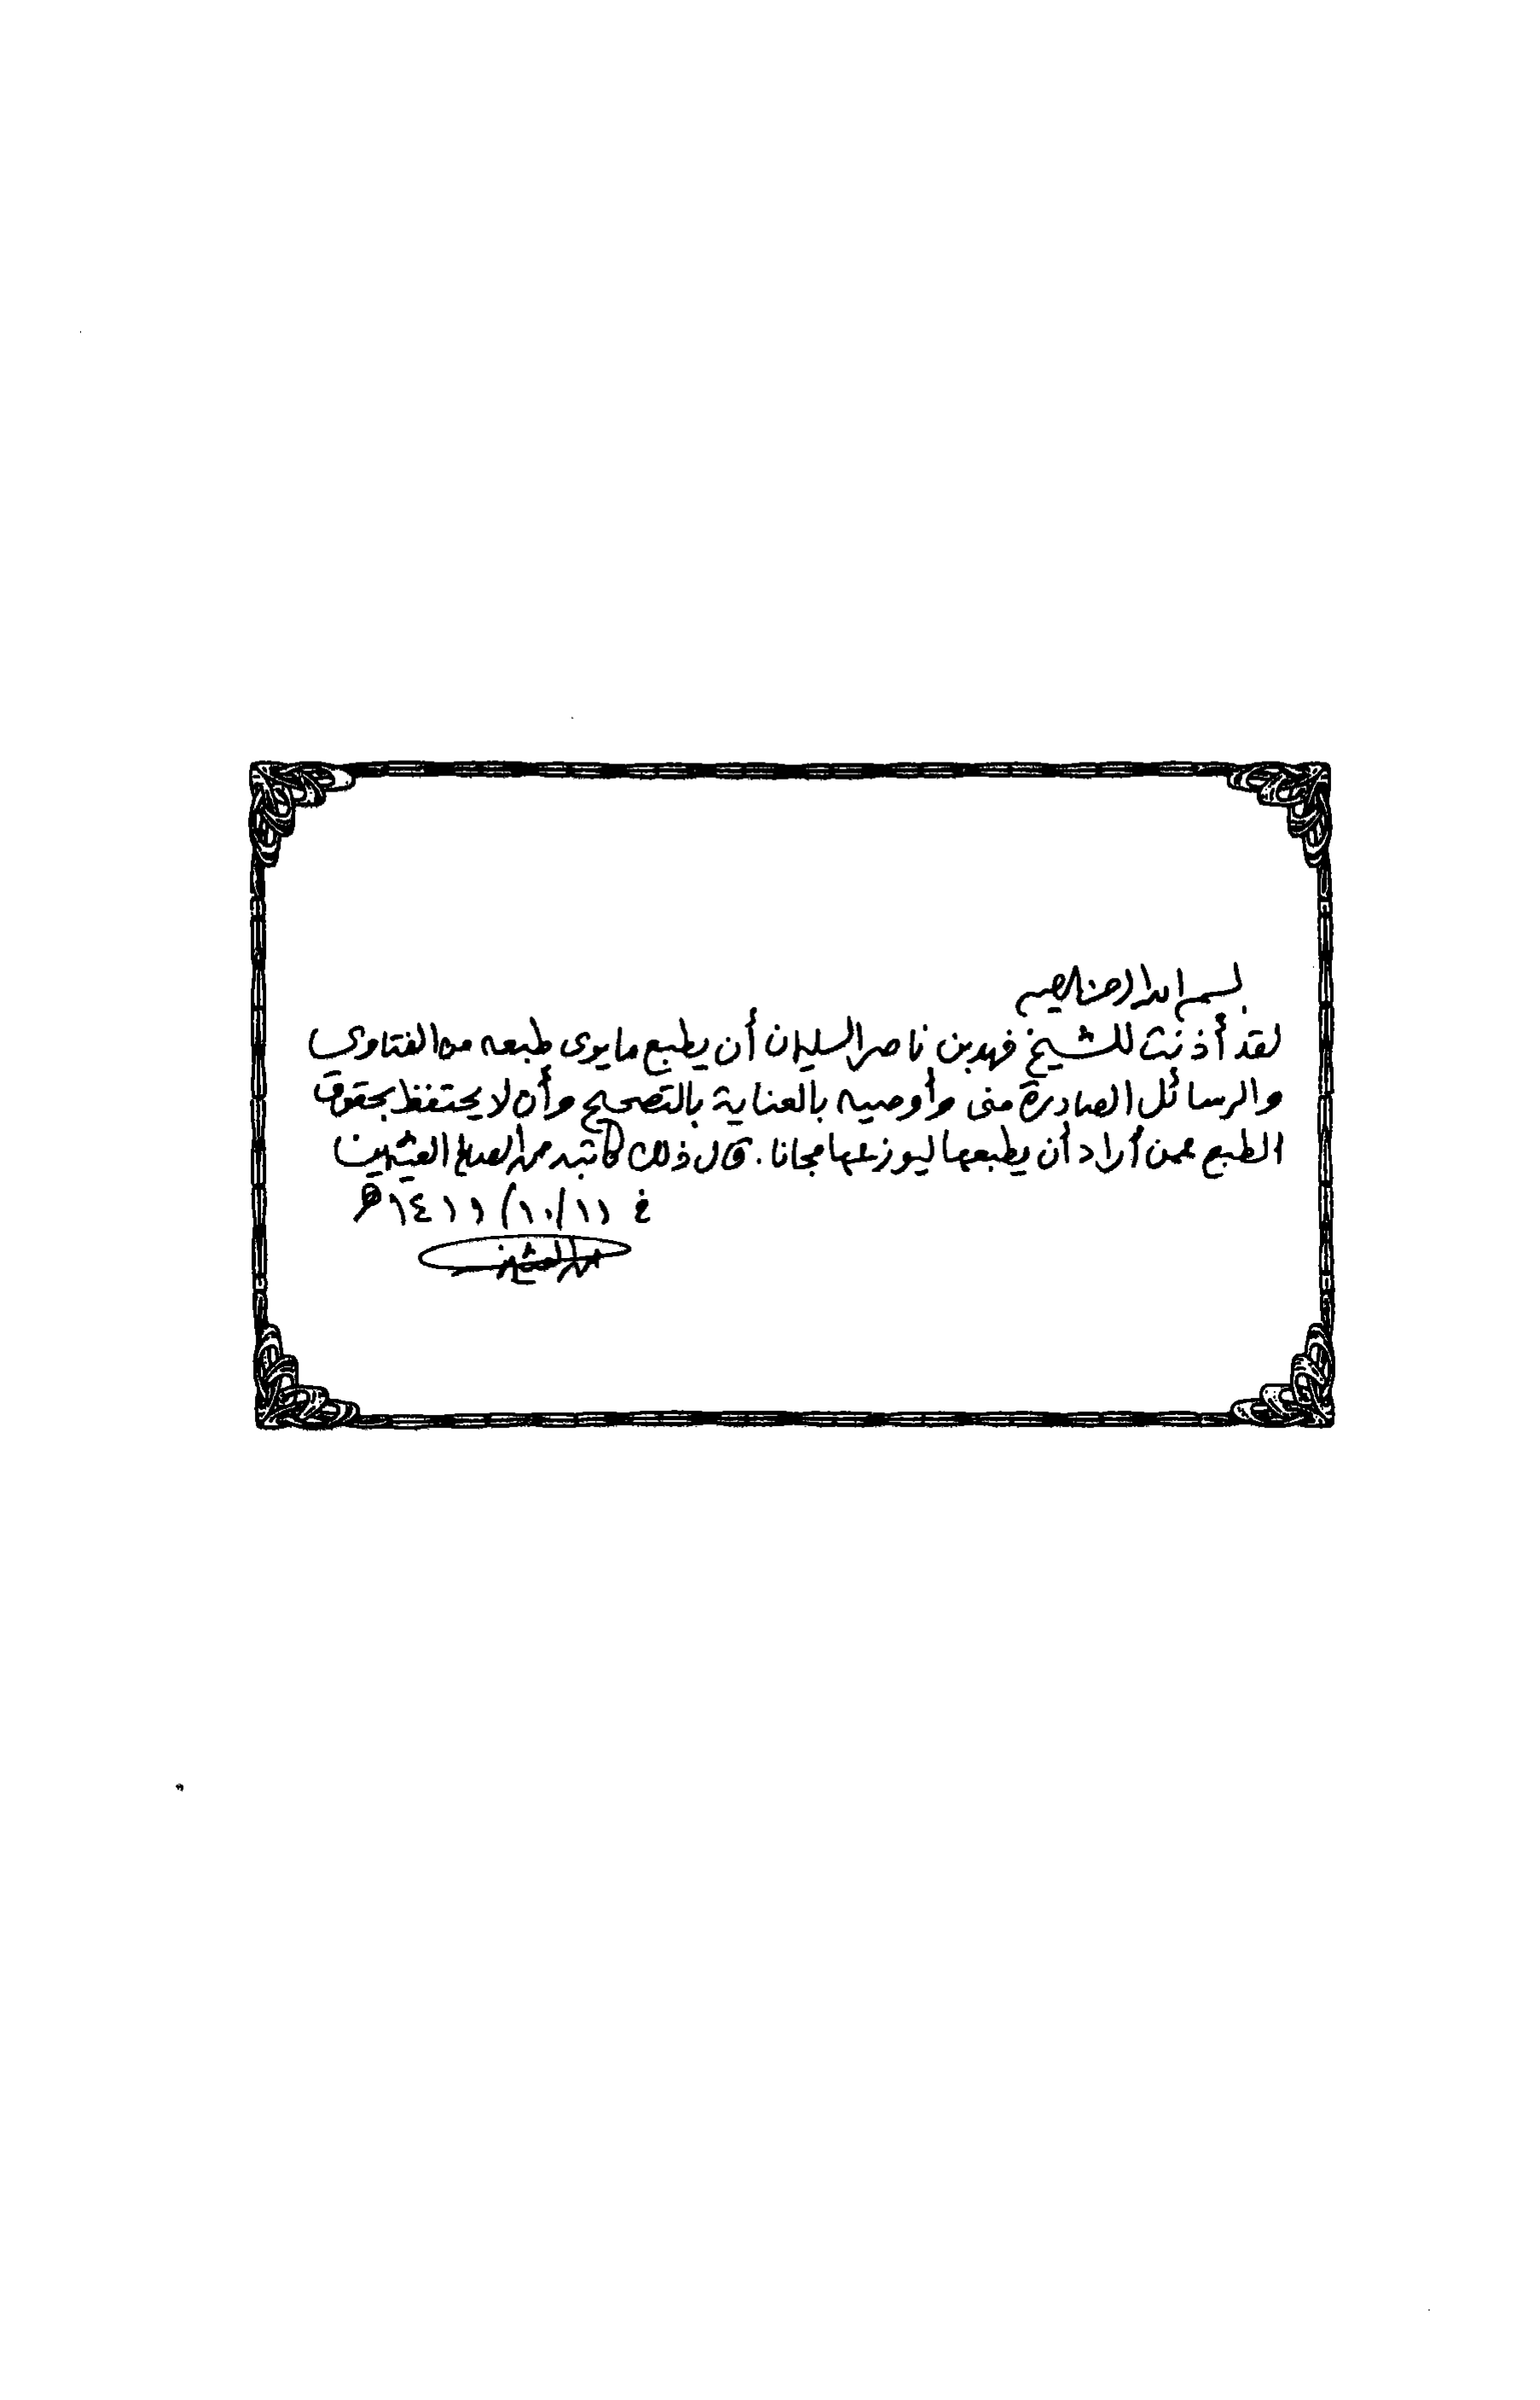 بسم الله الرحمن الرحيم
لقد أذنت للشيخ فهد بن ناصر السليمان أن يطبع ما يرى طبعه من الفتاوى
والرسائل الصادرة منى وأوصيه بالعناية بالتصحيح وأن لا يحتفظ بحقوق
الطبع عمن أراد أن يطبعها ليوزعها مجانا . قال ذلك كاتبه محمد الصالح العثيمين
في ١١/١٠/١٤١١ هـ
محمد العثيمين